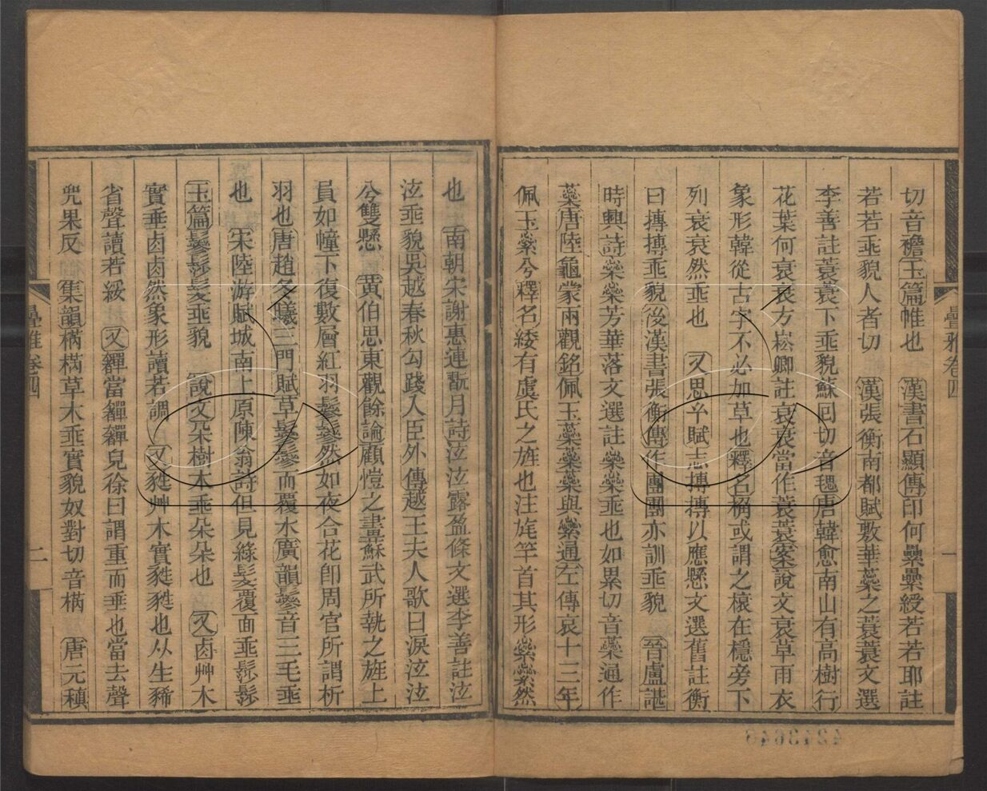 切音襜玉篇帷也　漢書石顯傳印何纍纍綬若若耶註
若若垂貌人者切　漢張衡南都賦敷華蘂之蓑蓑文選
李善註蓑蓑下垂貌蘇回切音毸唐韓愈南山有高樹行
花葉何衰衰方崧卿註衰衰當作蓑蓑案說文衰草雨衣
象形韓從古字不必加草也釋名桷或謂之榱在檼旁下
列衰衰然垂也　又思予賦志摶摶以應懸文選舊註衡
曰摶摶垂貌後漢書張衡傳作團團亦訓垂貌　晉盧諶
時興詩橤橤芳華落文選註橤橤垂也如累切音橤通作
蘂唐陸龜蒙兩觀銘佩玉蘂蘂蘂與縈通左傳哀十三年
佩玉縈兮釋名緌有虞氏之旌也注旄竿首其形橤橤然
也　南朝宋謝惠連翫月詩泣泣露盈條文選李善註泣
泣垂貌吳越春秋勾踐入臣外傳越王夫人歌曰淚泣泣
兮雙懸　黃伯思東觀餘論顧愷之畫蘇武所執之旌上
員如幢下復數層紅羽鬖鬖然如夜合花卽周官所謂析
羽也唐趙冬曦三門賦草鬖鬖而覆水廣韻鬖音三毛垂
也　宋陸游賦城南上原陳翁詩但見綠髮覆面垂髟髟
玉篇鬖髟髮垂貌　說文朵樹木垂朵朵也　又卤艸木
實垂卤卤然象形讀若調　又甤艸木實甤甤也从生豨
省聲讀若綏　又奲當奲奲兒徐曰謂重而垂也當去聲
兜果反　集韻𣔻𣔻草木垂實貌奴對切音𣔻　唐元稹
疊雅卷四
一
疊雅卷四
二